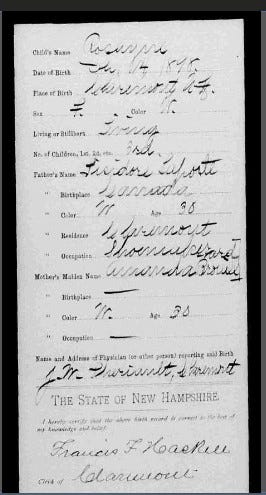 Child's Name Rosanna
Date of Birth 1878.
Place of Birth Claremont N.H.
Sex F. Color W.
Living or Stillborn Living
No. of Children, 1st, 2d, etc. 3rd.
Father's Name Isidore Laporte
" Birthplace Canada
" Color W Age 30
" Residence Claremont
" Occupation Shoemaker
Mother's Maiden Name Amanda
" Birthplace —
" Color W. Age 30
" Occupation —
Name and Address of Physician (or other person) reporting said Birth
J. W. Claremont
THE STATE OF NEW HAMPSHIRE.
I hereby certify that the above birth record is correct to the best of
my knowledge and belief.
Francis F. Haskell
Clerk of Claremont